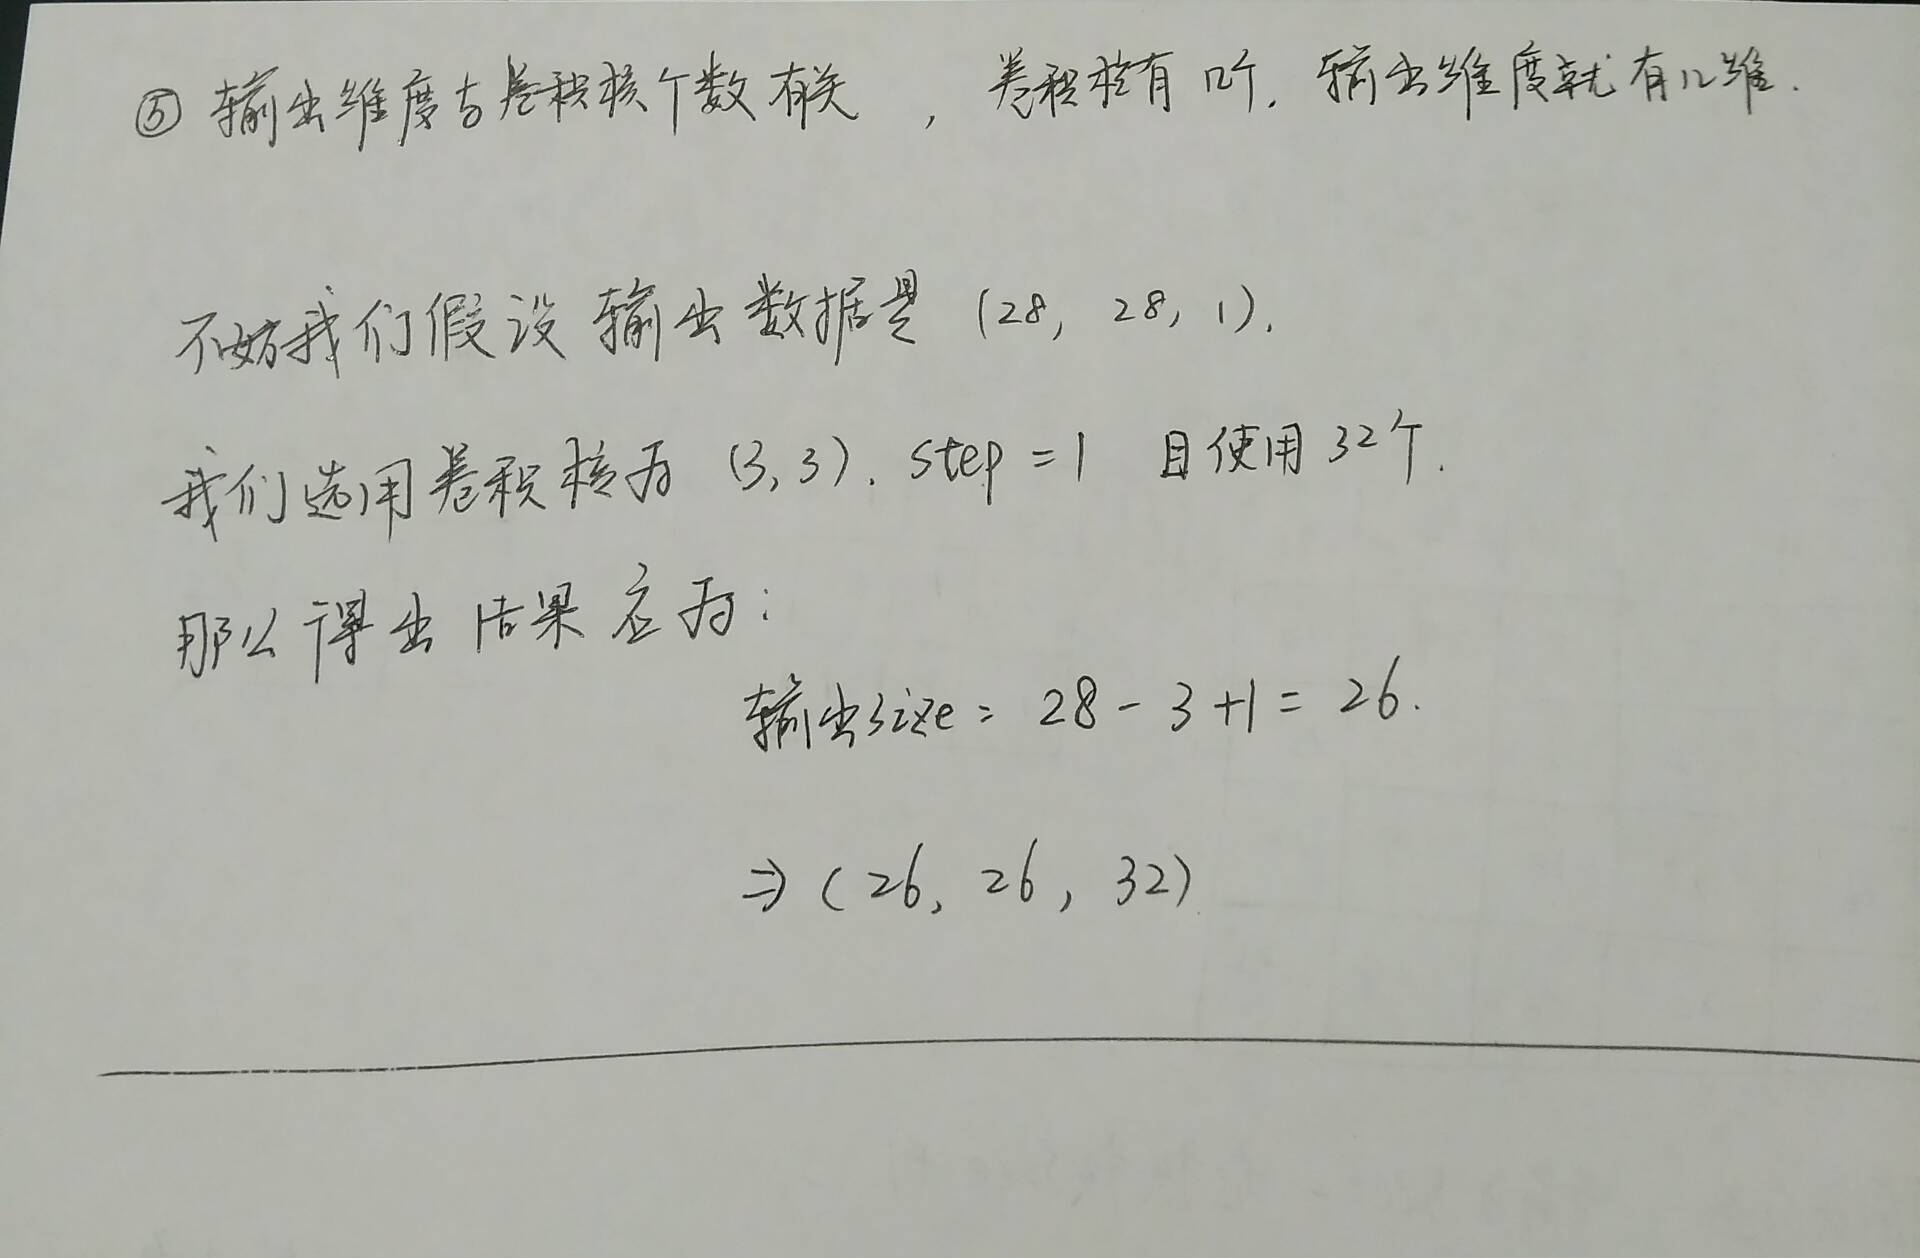 ⑤ 输出维度与卷积核个数有关, 卷积核有几个, 输出维度就有几维.
不妨我们假设输出数据是 (28, 28, 1).
我们选用卷积核为 (3,3). step = 1 且使用32个.
那么得出结果应为:
输出size = 28 - 3 + 1 = 26.
⇒ (26, 26, 32)